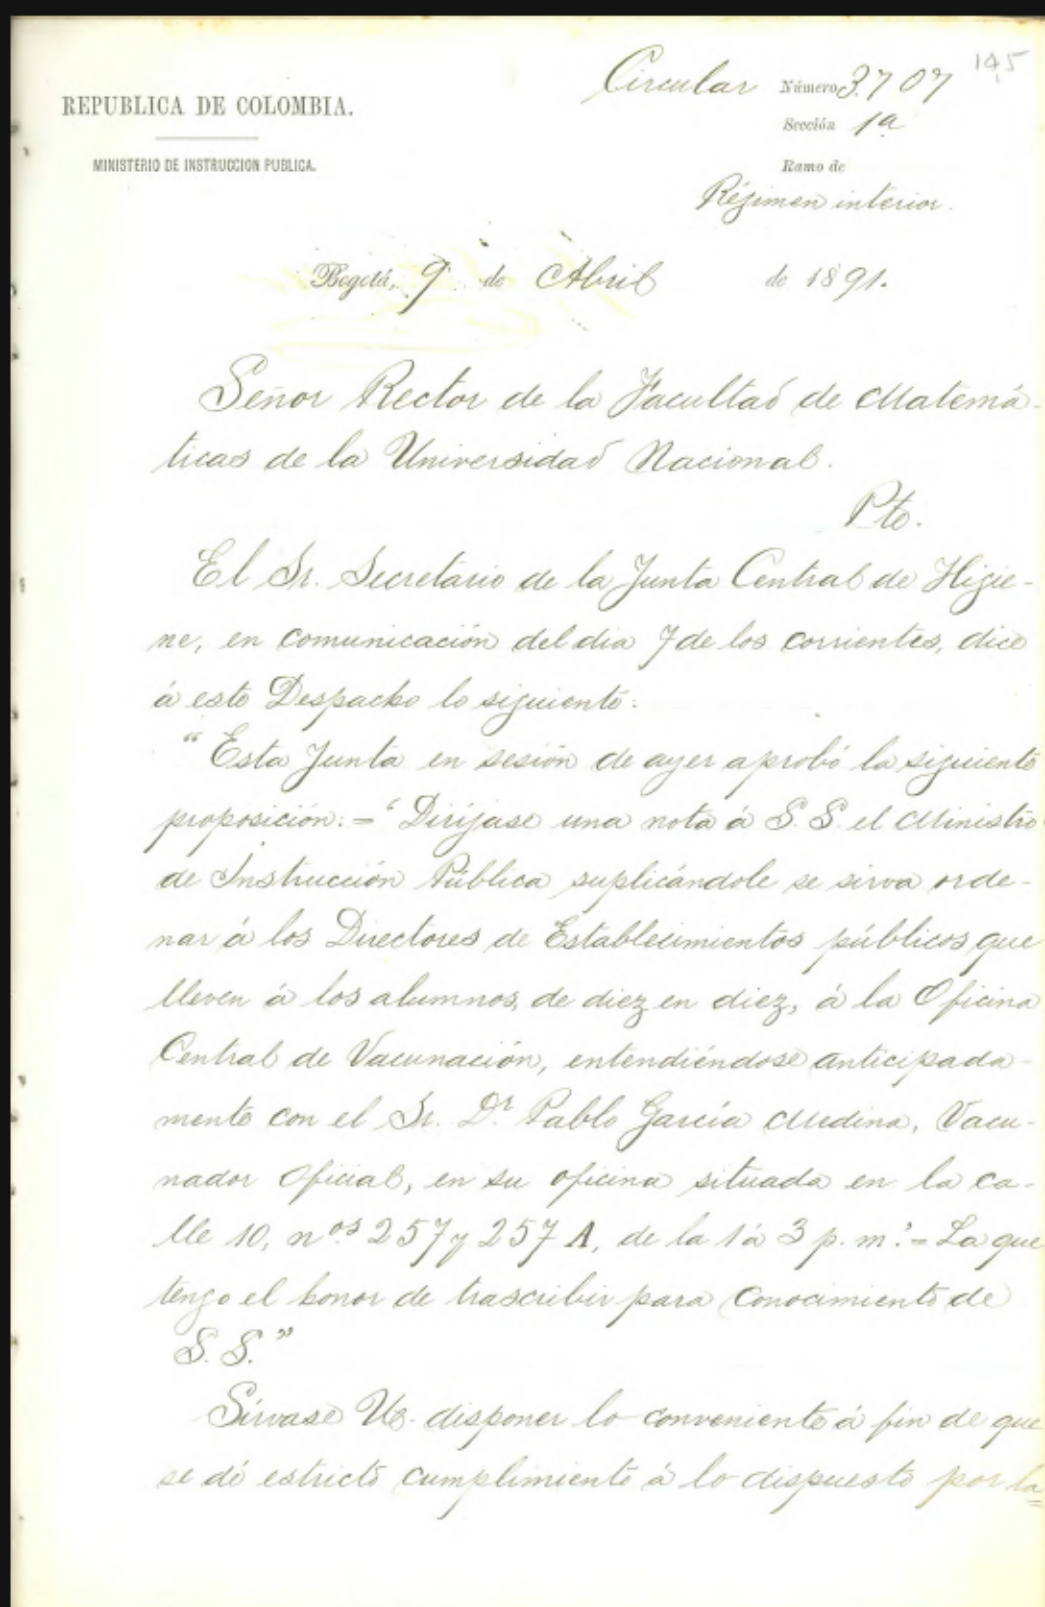 145
Circular Número 3707
REPUBLICA DE COLOMBIA.
Sección 1a
MINISTERIO DE INSTRUCCION PUBLICA.
Ramo de
Régimen interior.
Bogotá, 9 de Abril de 1891.
Señor Rector de la Facultad de Matemá-
ticas de la Universidad Nacional.
Pte.
El Sr. Secretario de la Junta Central de Higie-
ne, en comunicación del dia 7 de los corrientes, dice
á este Despacho lo siguiente:
"Esta Junta en sesión de ayer aprobó la siguiente
proposición:="Diríjase una nota á S. S. el Ministro
de Instrucción Pública suplicándole se sirva orde-
nar á los Directores de Establecimientos públicos que
lleven á los alumnos, de diez en diez, á la Oficina
Central de Vacunación, entendiéndose anticipada-
mente con el Sr. Dr. Pablo García Medina, Vacu-
nador Oficial, en su oficina situada en la ca-
lle 10, nos. 257 y 257 A, de la 1 á 3 p. m.'=Lo que
tengo el honor de trascribir para conocimiento de
S. S."
Sírvase Us. disponer lo conveniente á fin de que
se dé estricto cumplimiento á lo dispuesto por la